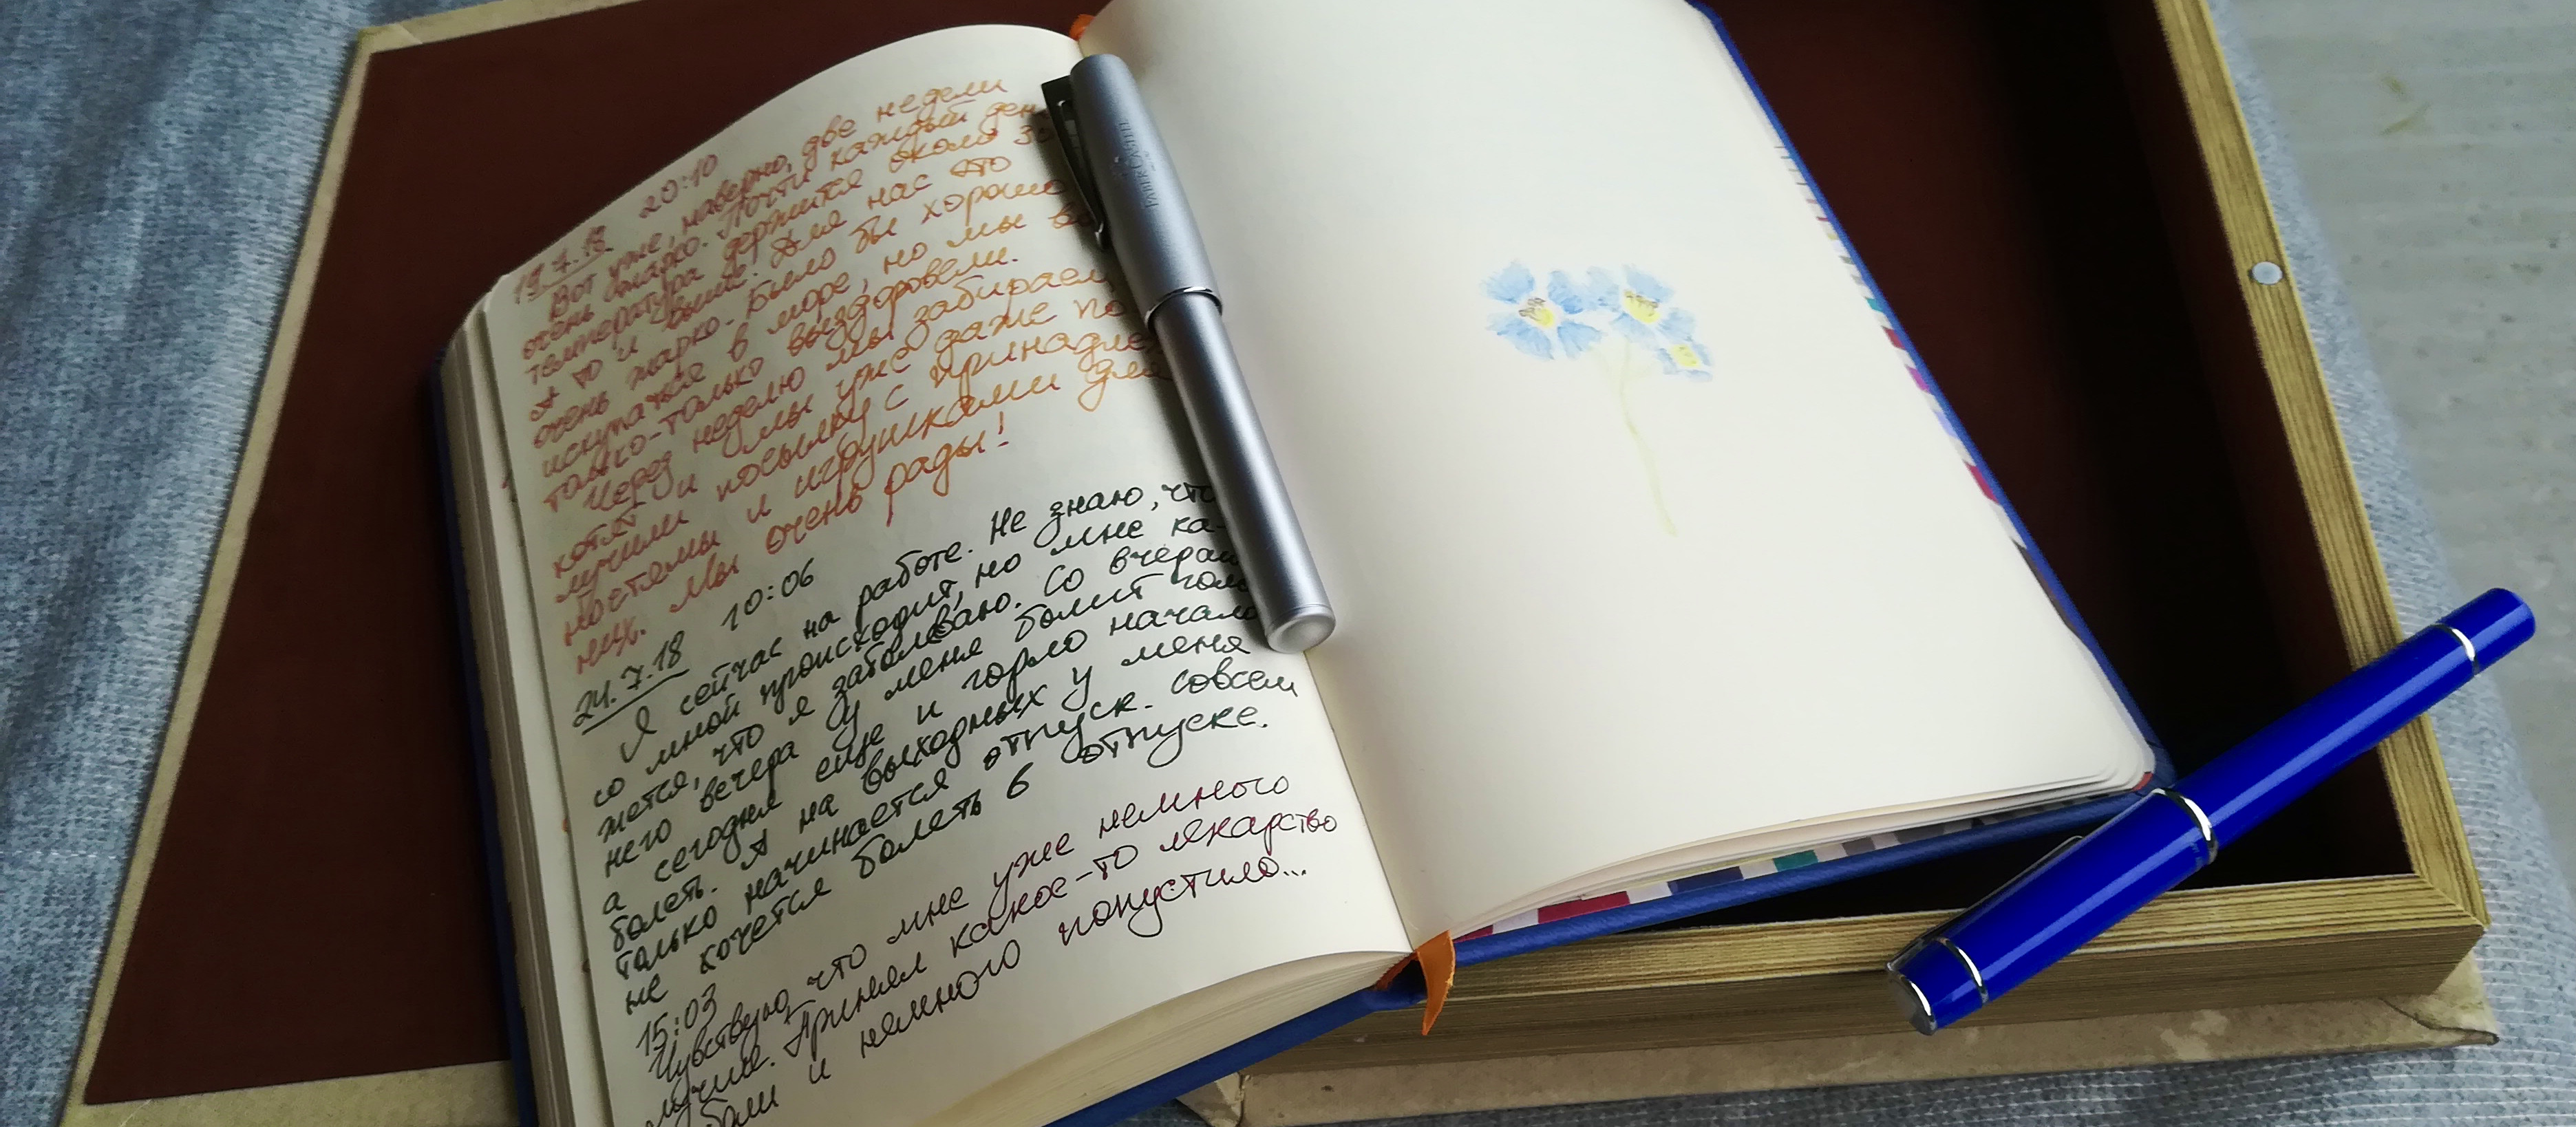 19.7.18 20:10
Вот уже, наверно, две недели
очень жарко. Почти каждый ден
температура держится около 30
А то и выше. Для нас это
очень жарко. Было бы хорошо
искупаться в море, но мы
только-только выздоровели.
Через неделю мы забираем
котят и мы уже даже по
лучили посылку с принадле
ностями и игрушками для
них. Мы очень рады!
24.7.18 10:06
Я сейчас на работе. Не знаю, что
со мной происходит, но мне ка-
жется, что я заболеваю. Со вчераш
него вечера у меня болит голо
а сегодня еще и горло начало
болеть. А на выходных у меня
только начинается отпуск. Совсем
не хочется болеть в отпуске.
15:03
Чувствую, что мне уже немного
лучше. Принял какое-то лекарство
боли и немного попустило...
FABER-CASTELL